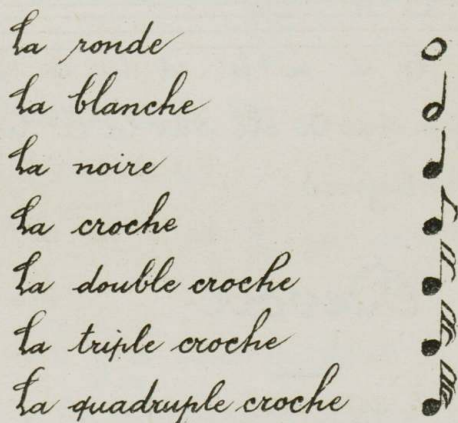 La ronde
La blanche
La noire
La croche
La double croche
La triple croche
La quadruple croche